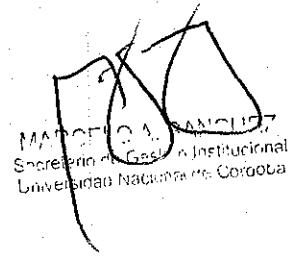 MARCELO A.
Secretario de Gestión Institucional
Universidad Nacional de Córdoba